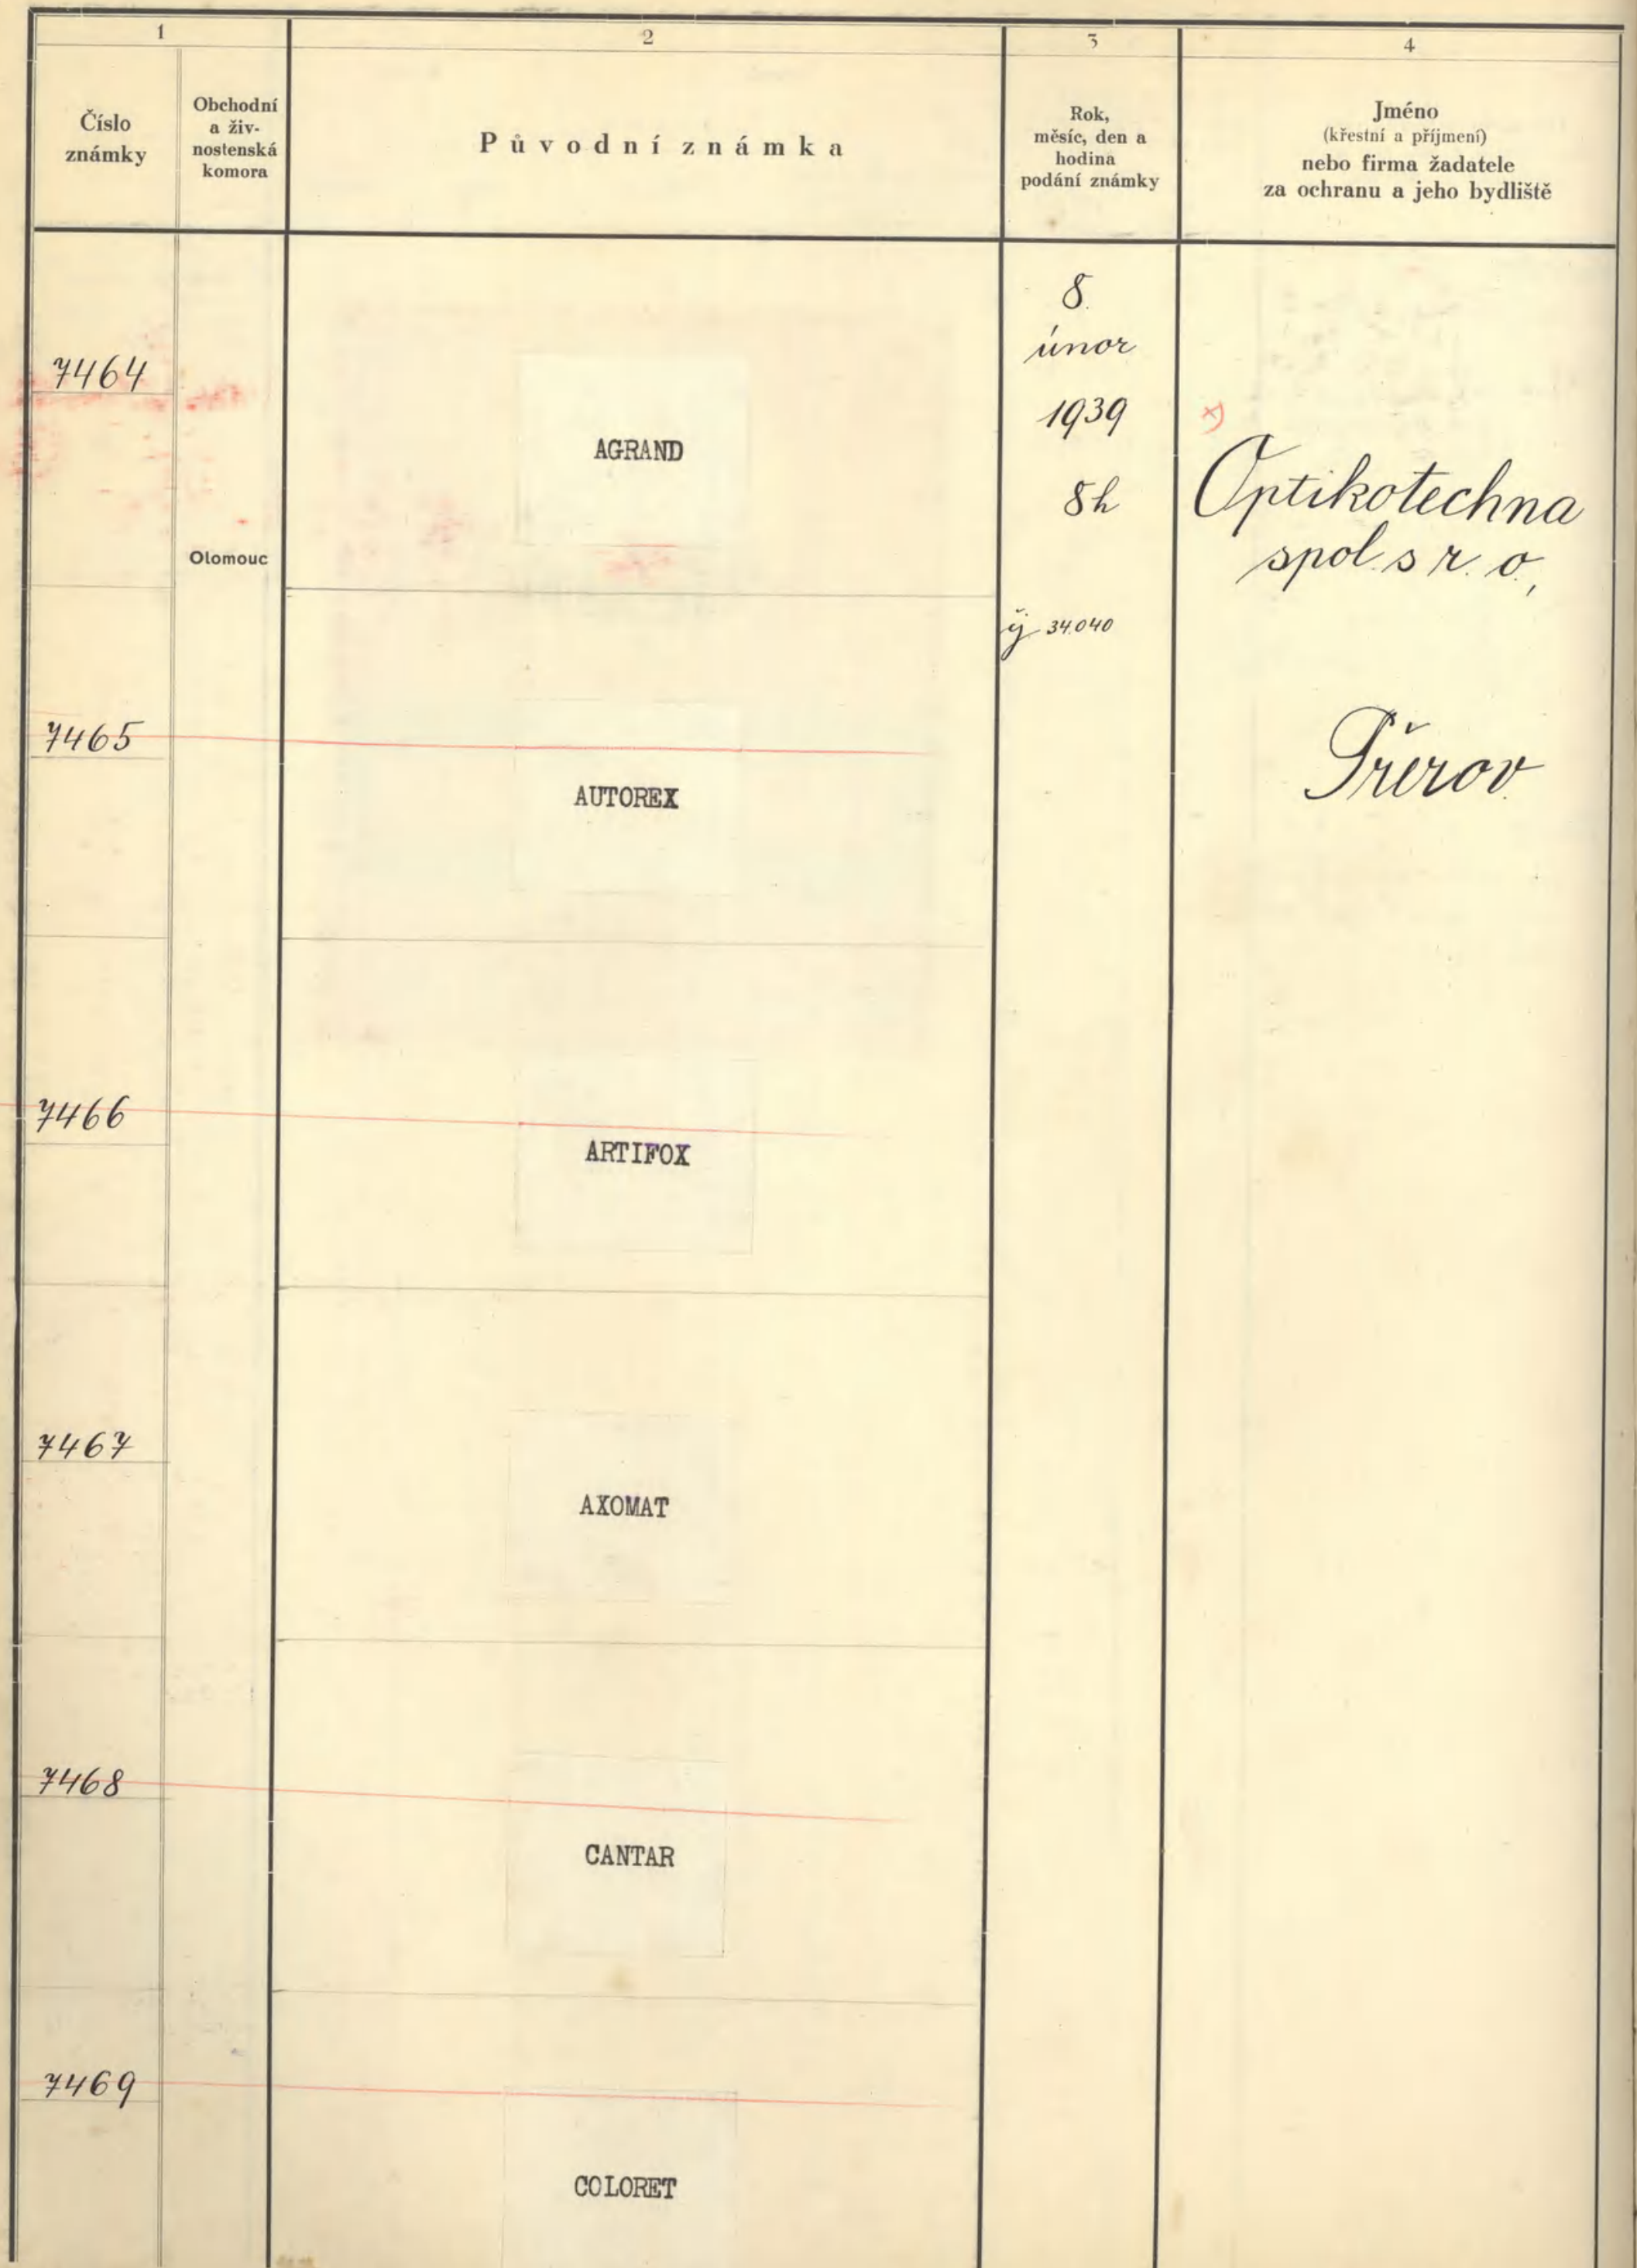 1
2
3
4
Číslo
známky
Obchodní
a živ-
nostenská
komora
Původní známka
Rok,
měsíc, den a
hodina
podání známky
Jméno
(křestní a příjmení)
nebo firma žadatele
za ochranu a jeho bydliště
7464
Olomouc
AGRAND
8.
únor
1939
8h
čj 34.040
x)
Optikotechna
spol. s r. o.,
Přerov
7465
AUTOREX
7466
ARTIFOX
7467
AXOMAT
7468
CANTAR
7469
COLORET